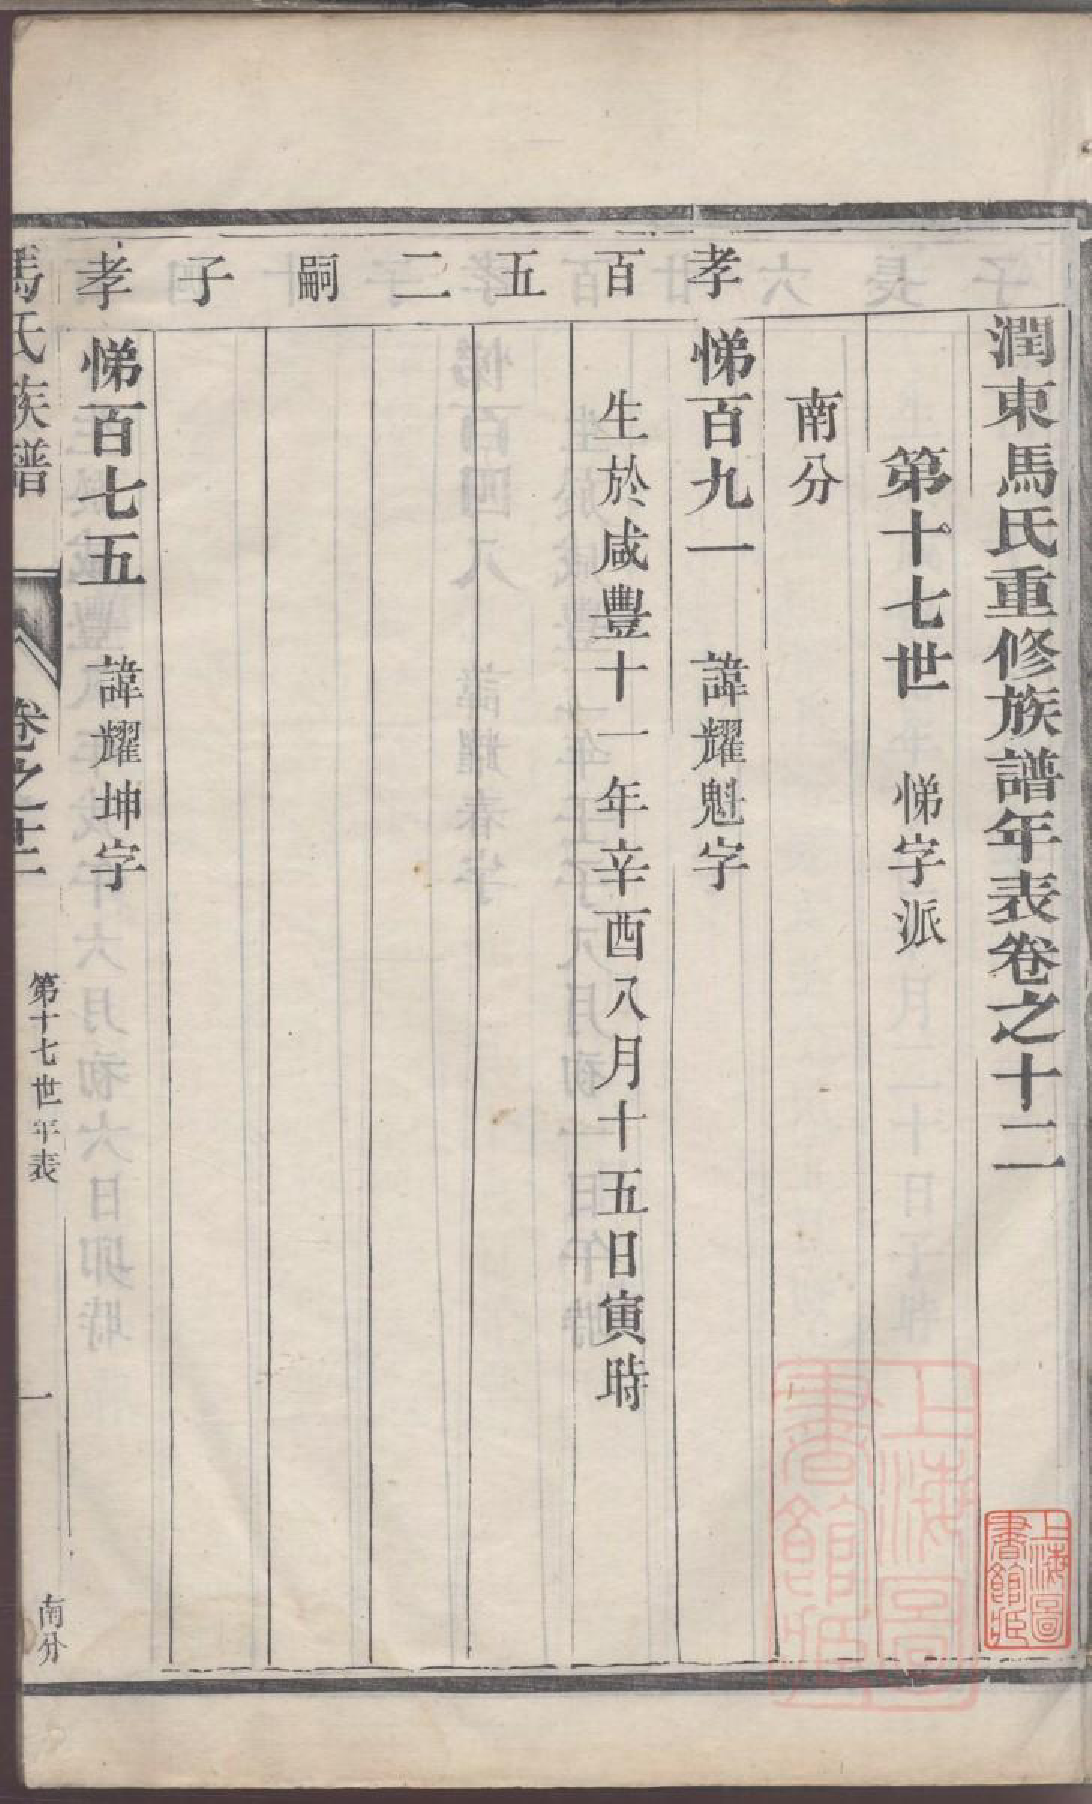 潤東馬氏重修族譜年表卷之十二
第十七世 悌字派
南分
孝百五二嗣子孝
悌百九一 諱耀魁字
生於咸豐十一年辛酉八月十五日寅時
悌百七五 諱耀坤字
馬氏族譜
卷之十二
第十七世年表
一
南分
上海圖書館藏
上海圖書館藏